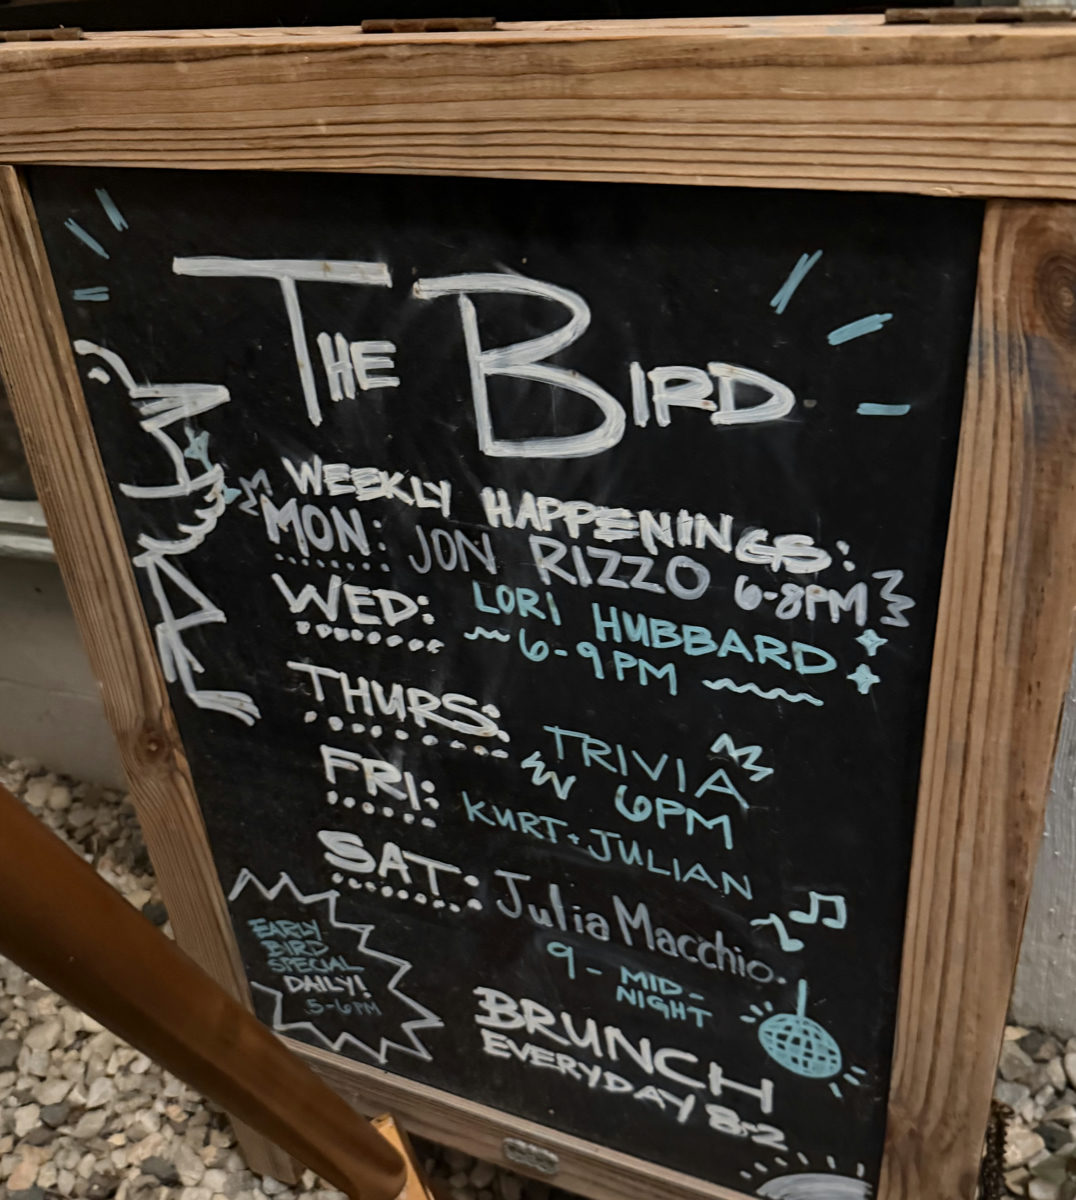 THE BIRD
WEEKLY HAPPENINGS:
MON: JON RIZZO 6-8PM
WED: LORI HUBBARD
6-9PM
THURS: TRIVIA
6PM
FRI: KURT + JULIAN
SAT: Julia Macchio.
9 - MID-
NIGHT
EARLY
BIRD
SPECIAL
DAILY!
5-6PM
BRUNCH
EVERYDAY 8-2